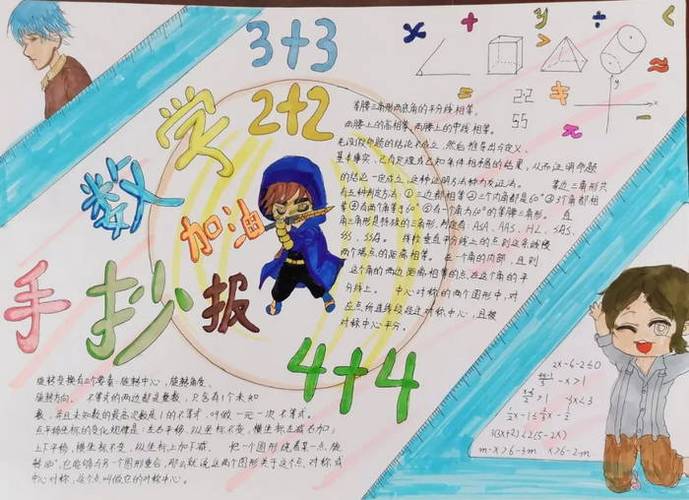 3+3
2+2
数学
加油
手抄报
4+4
x + y ÷ <
2.2
55
π
y
x
等腰三角形两底角的平分线相等,
两腰上的高相等,两腰上的中线相等。
先假设命题的结论不成立,然后推导出与定义、
基本事实、已有定理或已知条件相矛盾的结果,从而证明命题
的结论一定成立,这种证明方法称为反证法。 等边三角形共
有三种判定方法:①三边都相等②三个内角都是60°③3个角都相
等④有两个角等于60°⑤有一个角为60°的等腰三角形。 直
角三角形是特殊的三角形,判定有:ASA、AAS、HL、SAS、
SSS、SSA。 线段垂直平分线上的点到这条线段
两个端点的距离相等。 在一个角的内部,且到
这个角的两边距离相等的点,在这个角的平
分线上。 中心对称的两个图形中,对
应点所连线段经过对称中心,且被
对称中心平分。
旋转变换有三个要素:旋转中心,旋转角度、
旋转方向。 不等式的两边都是整数,只含有1个未知
数,并且未知数的最高次数是1的不等式,叫做一元一次不等式。
点平移坐标的变化规律是:左右平移,纵坐标不变,横坐标左减右加;
上下平移,横坐标不变,纵坐标上加下减。 把一个图形绕着某一点,旋
转180°,它能够与另一个图形重合,那么就说这两个图形关于这个点对称或
中心对称,这个点叫做它的对称中心。
2x-6-2≤0
-x>1
3x<3
3(3x+2)<2(5-2x)
m-x>6-3m x>6-2m